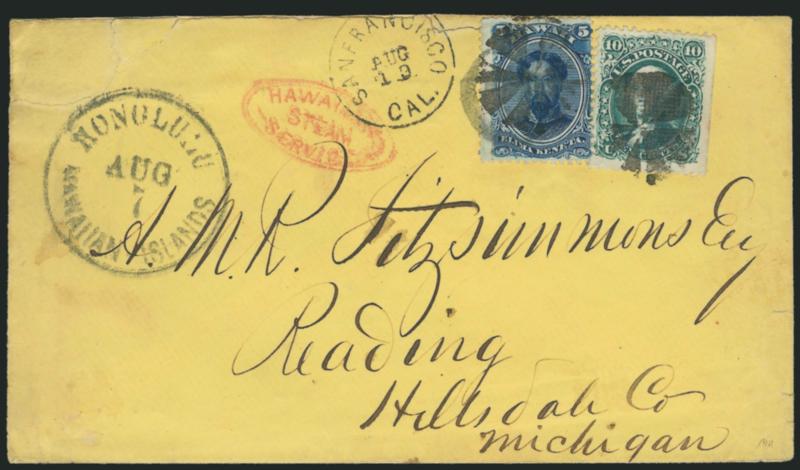 SAN FRANCISCO
AUG
19
CAL.
HAWAIIAN
STEAM
SERVICE
5 HAWAII 5
ELIMA KENETA
10 10
U.S. POSTAGE
HONOLULU
AUG
7
HAWAIIAN ISLANDS
A. M. R. Fitzsimmons Esq
Reading
Hillsdale Co
Michigan